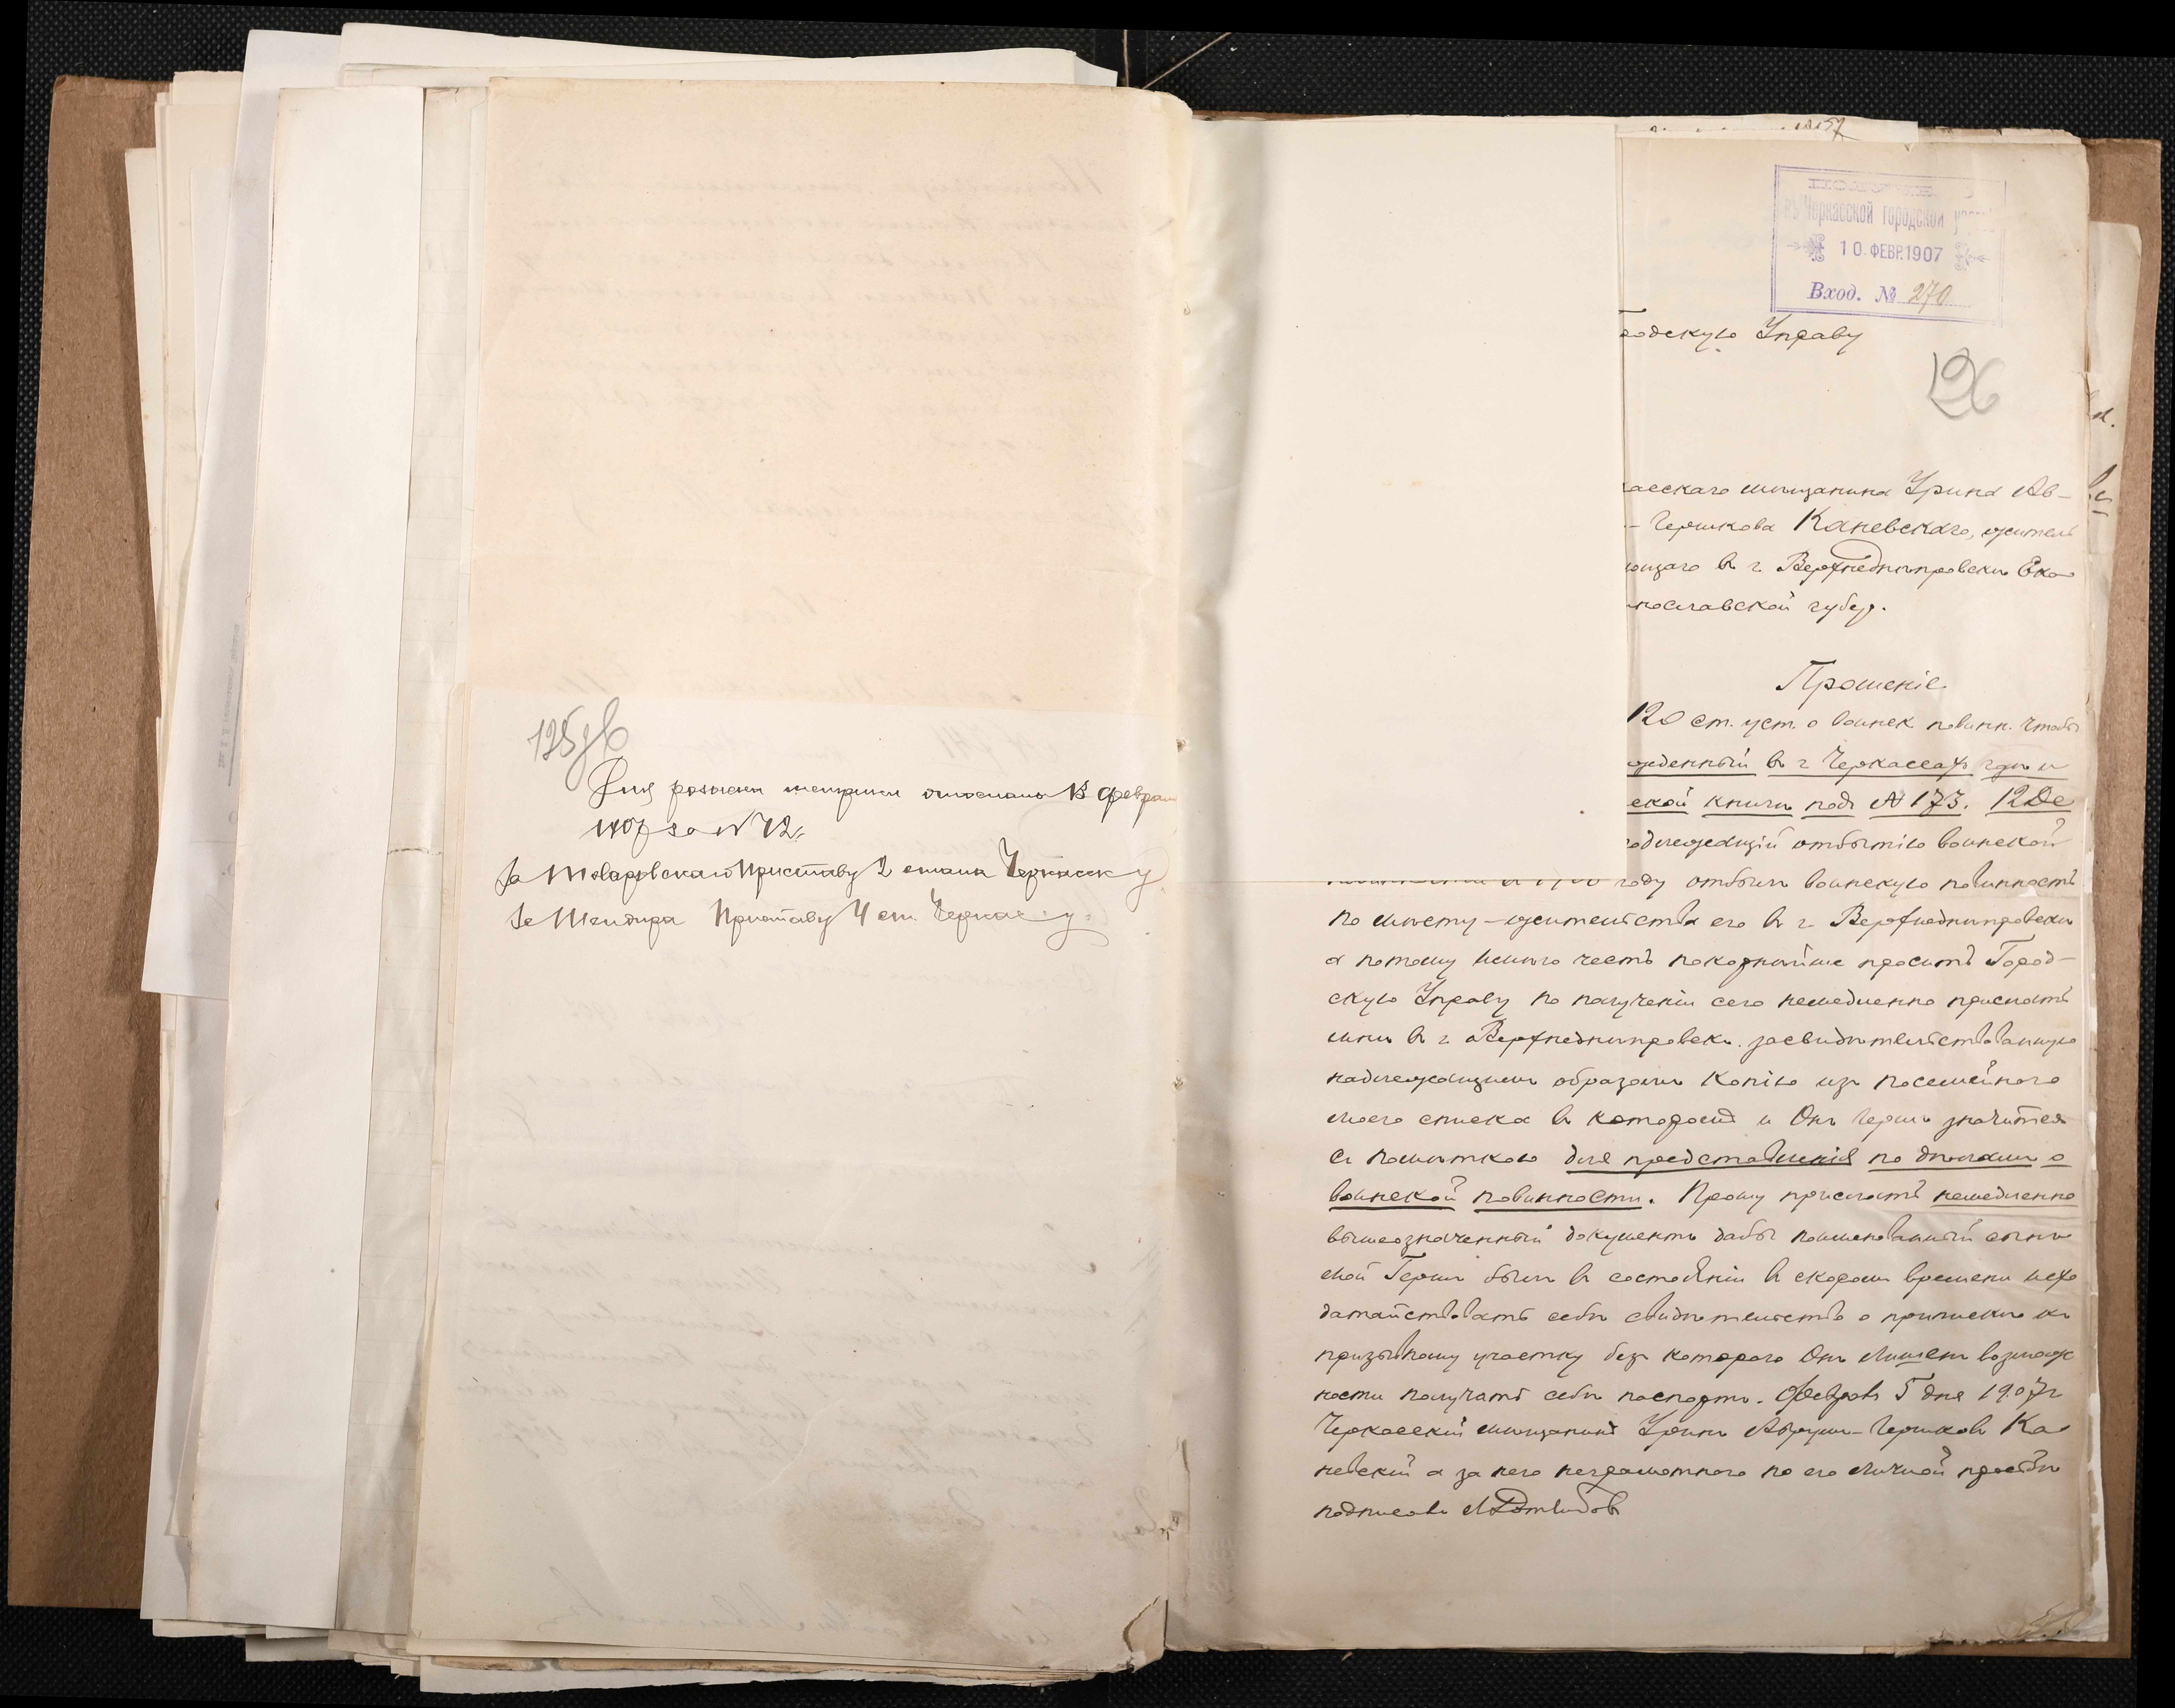 125об
Для розыска метрики отослано 13 февраля
1907 за № 72.
Товаровскаго Приставу 2 стана Черкасск у
Приставу 4 ст. Черкас. у.
въ Черкасской городской
10 ФЕВР. 1907
Вход. № 270
родскую Управу
126
касскаго мѣщанина Урина Аб-
Гершкова Каневскаго, житель
ющаго въ г. Верхнеднѣпровскѣ Ека
нославской губер.
Прошеніе
120 ст. уст. о воинск повинн. чтобы
жденный въ г Черкассахъ гдѣ и
ской книгѣ подъ № 173. 12 Де
одлежащій отбытію воинской
году отбылъ воинскую повинность
по мѣсту-жительства его въ г. Верхнеднѣпровскѣ
а потому имѣю честь покорнѣйше просить Город-
скую Управу по полученіи сего немедленно прислать
мнѣ въ г. Верхнеднѣпровскъ. засвидѣтельствованную
надлежащимъ образомъ копію изъ посемейного
моего списка въ которомъ и Онъ Гершъ значится
съ помѣткою для представленія по дѣламъ о
воинской повинности. Прошу прислать немедленно
вышеозначенный документъ дабы поименованный сынъ
мой Гершъ былъ въ состояніи въ скоромъ времени исхо
датайствовать себѣ свидѣтельство о припискѣ къ
призывному участку безъ котораго Онъ лишенъ возмож
ности получать себѣ паспортъ. Февраля 5 дня 1907г
Черкасскій мѣщанинъ Уринъ Абрумъ-Гершковъ Ка
невскій а за него неграмотного по его личной просьбѣ
подписалъ